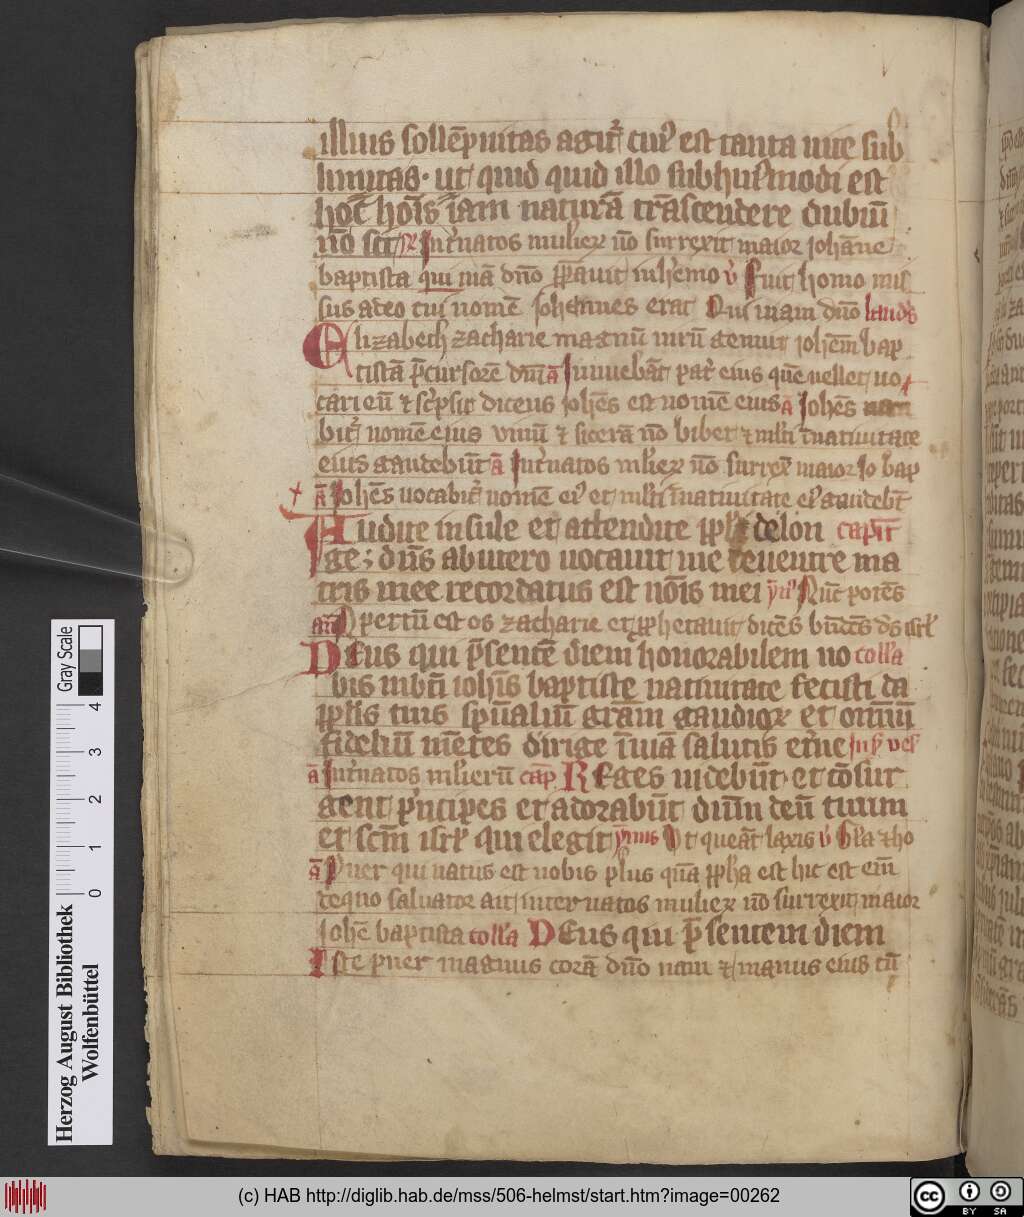 illius sollēpnitas agit᷑ cui᷒ est tanta uite sub
limitas· ut quid quid illo subhui᷒modi est
hoc̄ hoīs iam naturā trāscendere dubiū
nō sit Int᷑natos mulieꝝ nō surrexit maior iohāne
baptista qui uiā dn̄o p̄pauit inh᷑emo v̄ Fuit homo mis
sus adeo cui nomē iohannes erat Qui uiam dn̄o laudꝰ
Elizabeth zacharie magnū uirū genuit ioh̄em bap
tistā p̄cursorē dn̄i ā Innuebāt pat᷑ eius quē uellet uo
cari eū ⁊ sc̄psit dicens ioh̄es est nomē eius ā Ioh̄es
bit᷑ nomē eius vinū ⁊ sicerā nō bibet ⁊ ml̄ti īnatiuitate
eius gaudebūt ā Int᷑natos ml̄ieꝝ nō surrex᷑ maior Io bap
ā Ioh̄es uocabit᷑ nomē ei᷒ et ml̄ti īnatiuitate ei᷒ gaudebt̄
Audite insule et attendite ppl̄i delon capit̄
ge; dn̄s abutero uocauit me deuentre ma
tris mee recordatus est nōis mei Nūc potēs
añ Apertū est os zacharie et p̄phetauit dicēs bn̄dc̄s dс̄ isrl̄
Deus qui p̄sentē diem honorabilem no coll̄a
bis inbt̄i ioh̄is baptiste natiuitate fecisti da
ppl̄is tuis sp̄ualiū grām gaudioꝝ et om̄iū
fideliū mētes dirige īuiā salutis et᷑ne In ves
ā Int᷑natos ml̄ierū cap̄ REges uidebūt et cōsur
gent p̄ncipes et adorabūt dn̄m deū tuum
et sc̄m isrl̄ qui elegit ymus Ut queāt laxis v̄
ā Puer qui natus est nobis plus quā pp̄ha est hic est em̄
dequo saluator ait inter natos mulieꝝ nō surrexit maior
Iohē baptista coll̄a DEus qui p̄sentem diem
Iste puer magnus corā dn̄o nam ⁊ manus eius cū
Gray Scale
4
3
2
1
0
Herzog August Bibliothek
Wolfenbüttel
(c) HAB http://diglib.hab.de/mss/506-helmst/start.htm?image=00262
cc
BY SA